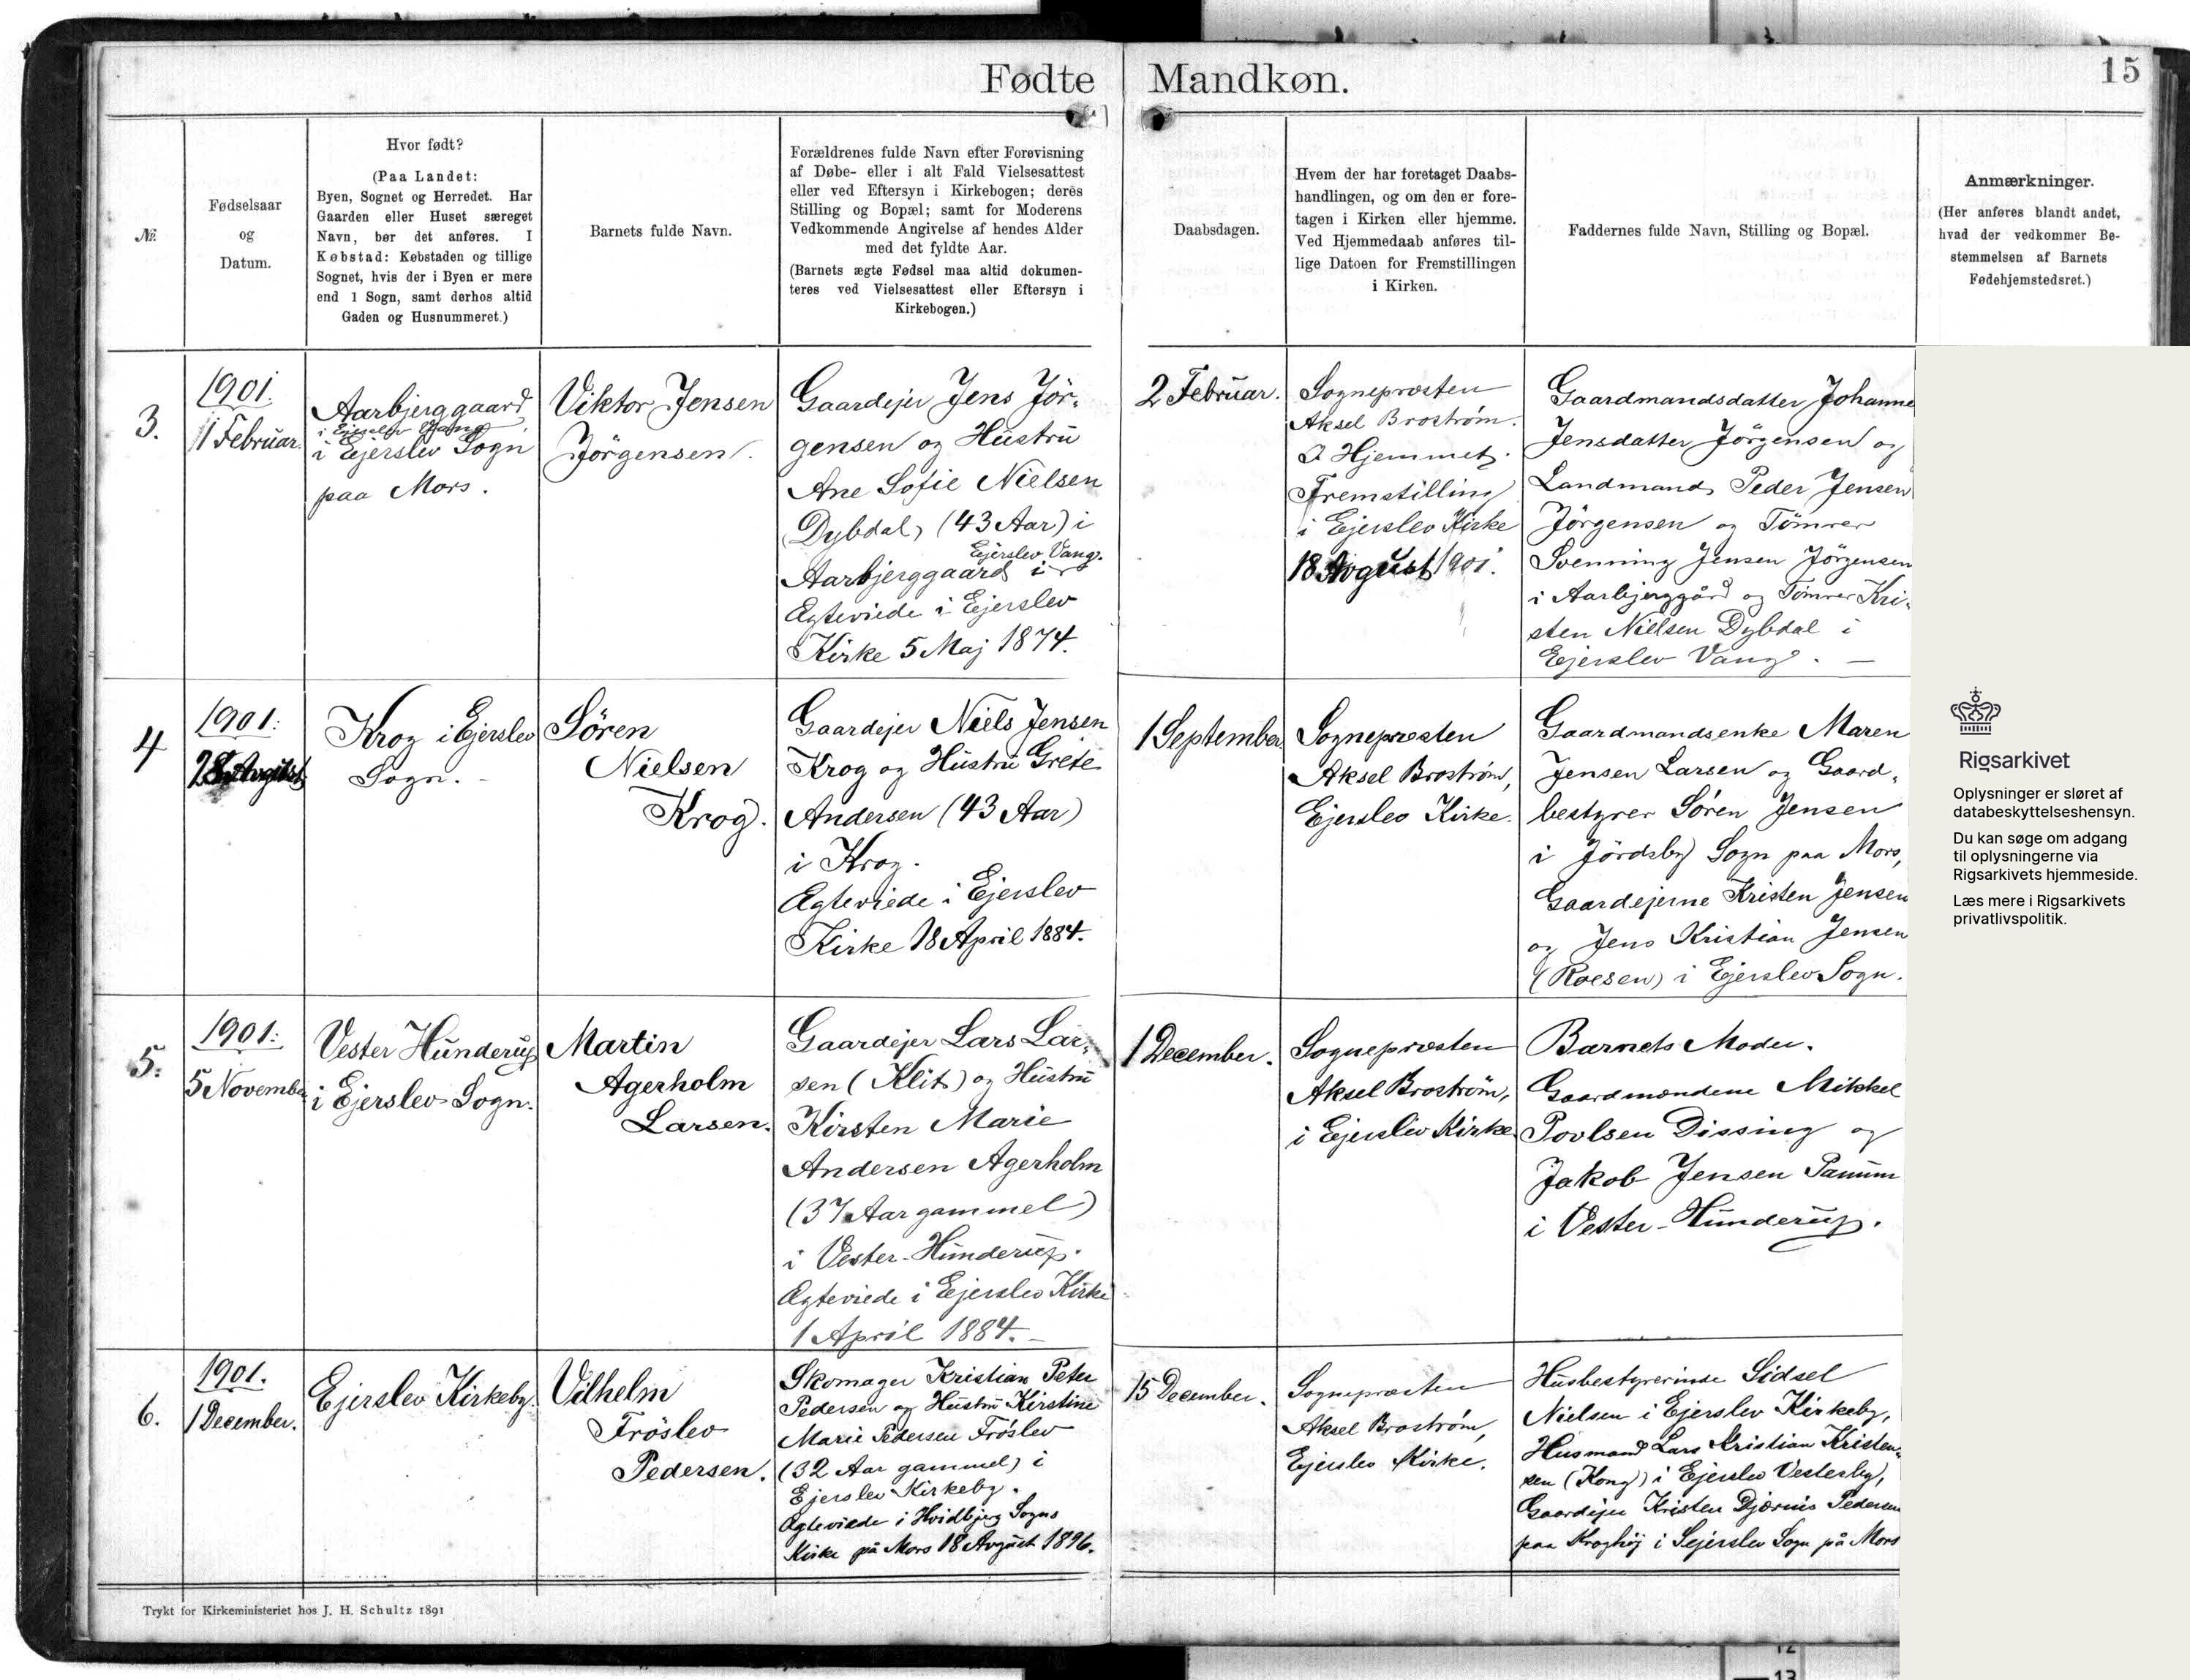 Fødte Mandkøn.
15
№
Fødselsaar
og
Datum.
Hvor født?
(Paa Landet:
Byen, Sognet og Herredet. Har
Gaarden eller Huset særeget
Navn, bør det anføres. I
Købstad: Købstaden og tillige
Sognet, hvis der i Byen er mere
end 1 Sogn, samt derhos altid
Gaden og Husnummeret.)
Barnets fulde Navn.
Forældrenes fulde Navn efter Forevisning
af Døbe- eller i alt Fald Vielsesattest
eller ved Eftersyn i Kirkebogen; deres
Stilling og Bopæl; samt for Moderens
Vedkommende Angivelse af hendes Alder
med det fyldte Aar.
(Barnets ægte Fødsel maa altid dokumen-
teres ved Vielsesattest eller Eftersyn i
Kirkebogen.)
Daabsdagen.
Hvem der har foretaget Daabs-
handlingen, og om den er fore-
tagen i Kirken eller hjemme.
Ved Hjemmedaab anføres til-
lige Datoen for Fremstillingen
i Kirken.
Faddernes fulde Navn, Stilling og Bopæl.
Anmærkninger.
(Her anføres blandt andet,
hvad der vedkommer Be-
stemmelsen af Barnets
Fødehjemstedsret.)
3.
1901.
1 Februar.
Aarbjerggaard
i Ejerslev Vang
i Ejerslev Sogn
paa Mors.
Viktor Jensen
Jörgensen.
Gaardejer Jens Jör-
gensen og Hustru
Ane Sofie Nielsen
Dybdal, (43 Aar) i
Ejerslev Vang.
Aarbjerggaard i
Ægteviede i Ejerslev
Kirke 5 Maj 1874.
2 Februar.
Sognepræsten
Aksel Broström.
I Hjemmet.
Fremstilling
i Ejerslev Kirke
18 Avgust 1901.
Gaardmandsdatter Johanne
Jensdatter Jörgensen og
Landmand Peder Jensen
Jörgensen og Tömrer
Svenning Jensen Jörgensen
i Aarbjerggård og Tömrer Kri-
sten Nielsen Dybdal i
Ejerslev Vang. —
4
1901.
Avgust
Krog i Ejerslev
Sogn. -
Sören
Nielsen
Krog.
Gaardejer Niels Jensen
Krog og Hustru Grete
Andersen (43 Aar)
i Krog.
Ægteviede i Ejerslev
Kirke 18 April 1884.
1 September
Sognepræsten
Aksel Broström,
Ejerslev Kirke.
Gaardmandsenke Maren
Jensen Larsen og Gaard-
bestyrer Sören Jensen
i Jördsby Sogn paa Mors,
Gaardejerne Kristen Jensen
og Jens Kristian Jensen
(Roesen) i Ejerslev Sogn.
5.
1901.
5 November
Vester Hunderup
i Ejerslev Sogn.
Martin
Agerholm
Larsen.
Gaardejer Lars Lar-
sen (Klit) og Hustru
Kirsten Marie
Andersen Agerholm
(37 Aar gammel)
i Vester-Hunderup.
Ægteviede i Ejerslev Kirke
1 April 1884. -
1 December.
Sognepræsten
Aksel Broström,
i Ejerslev Kirke
Barnets Moder.
Gaardmændene Mikkel
Povlsen Dissing og
Jakob Jensen Panum
i Vester-Hunderup.
6.
1901.
1 December.
Ejerslev Kirkeby.
Vilhelm
Fröslev
Pedersen.
Skomager Kristian Peter
Pedersen og Hustru Kirstine
Marie Pedersen Fröslev
(32 Aar gammel) i
Ejerslev Kirkeby.
Ægteviede i Hvidbjerg Sogns
Kirke på Mors 18 Avgust 1896.
15 December.
Sognepræsten
Aksel Broström,
Ejerslev Kirke.
Husbestyrerinde Sidsel
Nielsen i Ejerslev Kirkeby,
Husmand Lars Kristian Kristen-
sen (Kong) i Ejerslev Vesterby,
Gaardejer Kristen Djærnis Pedersen
paa Kroghöj i Sejerslev Sogn på Mors
Trykt for Kirkeministeriet hos J. H. Schultz 1891
Rigsarkivet
Oplysninger er sløret af
databeskyttelseshensyn.
Du kan søge om adgang
til oplysningerne via
Rigsarkivets hjemmeside.
Læs mere i Rigsarkivets
privatlivspolitik.
12
13